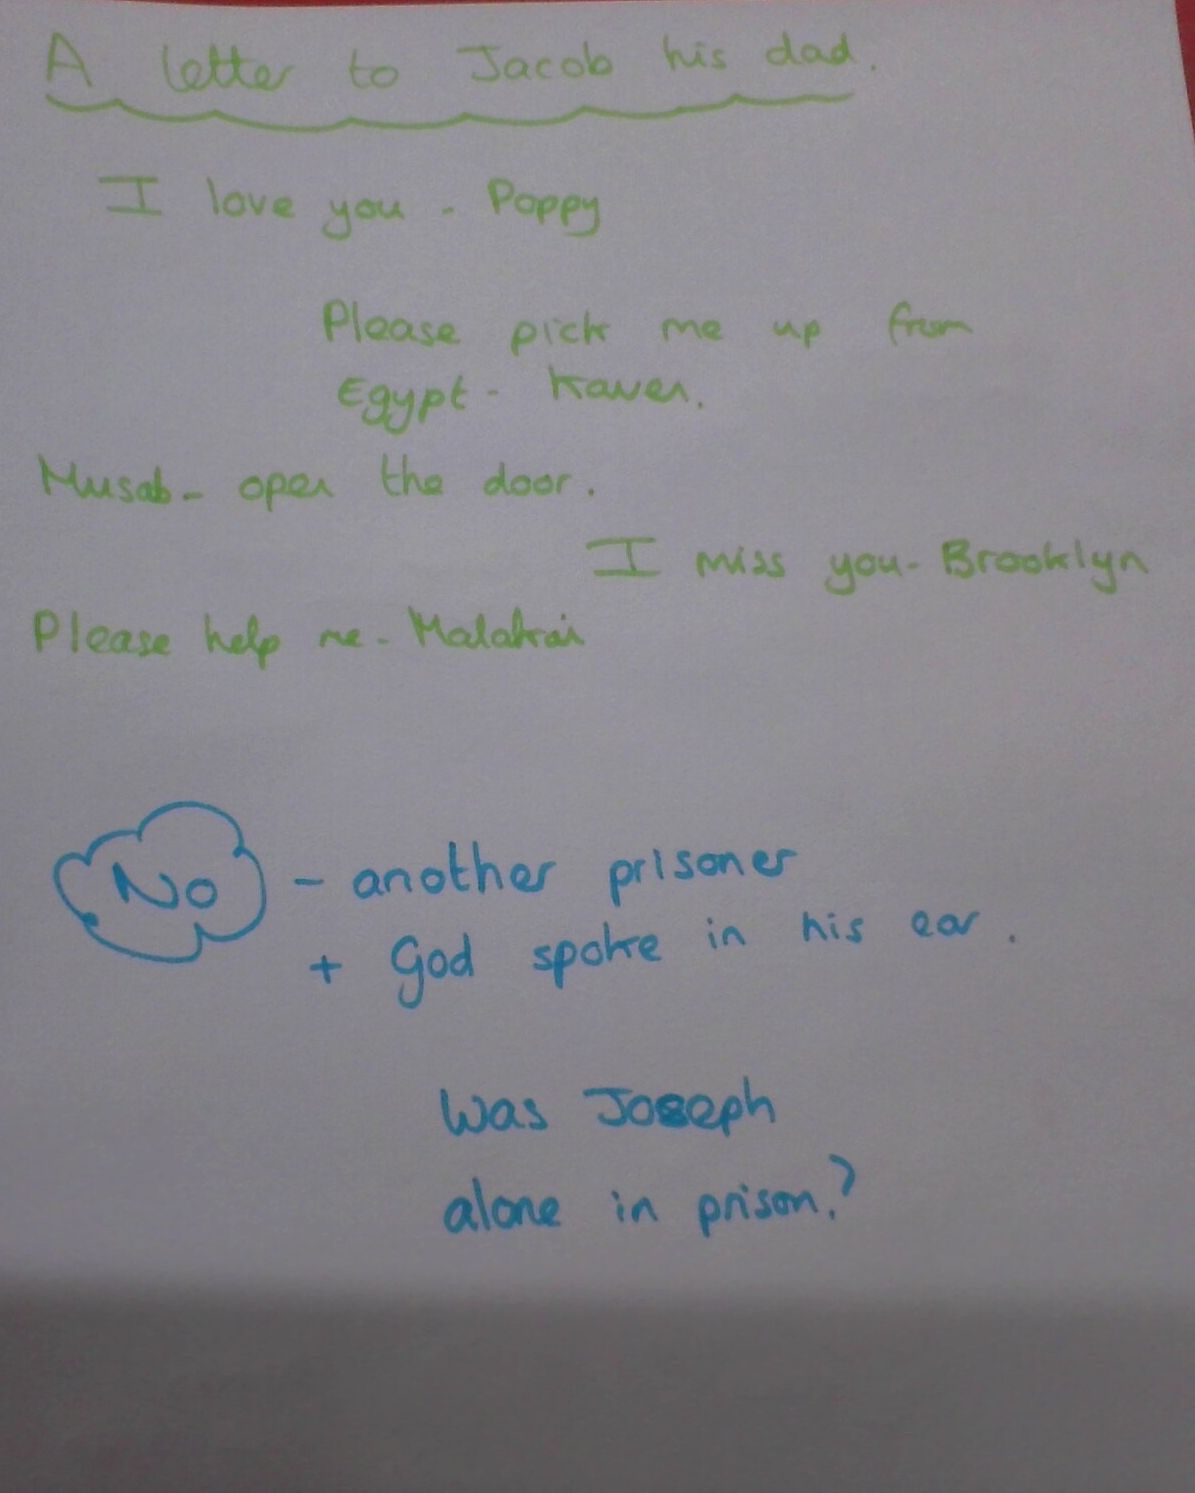 A letter to Jacob his dad.
I love you - Poppy
Please pick me up from
Egypt - Kaven.
Musab - open the door.
I miss you - Brooklyn
Please help me - Malakai
No - another prisoner
+ God spoke in his ear.
Was Joseph
alone in prison?